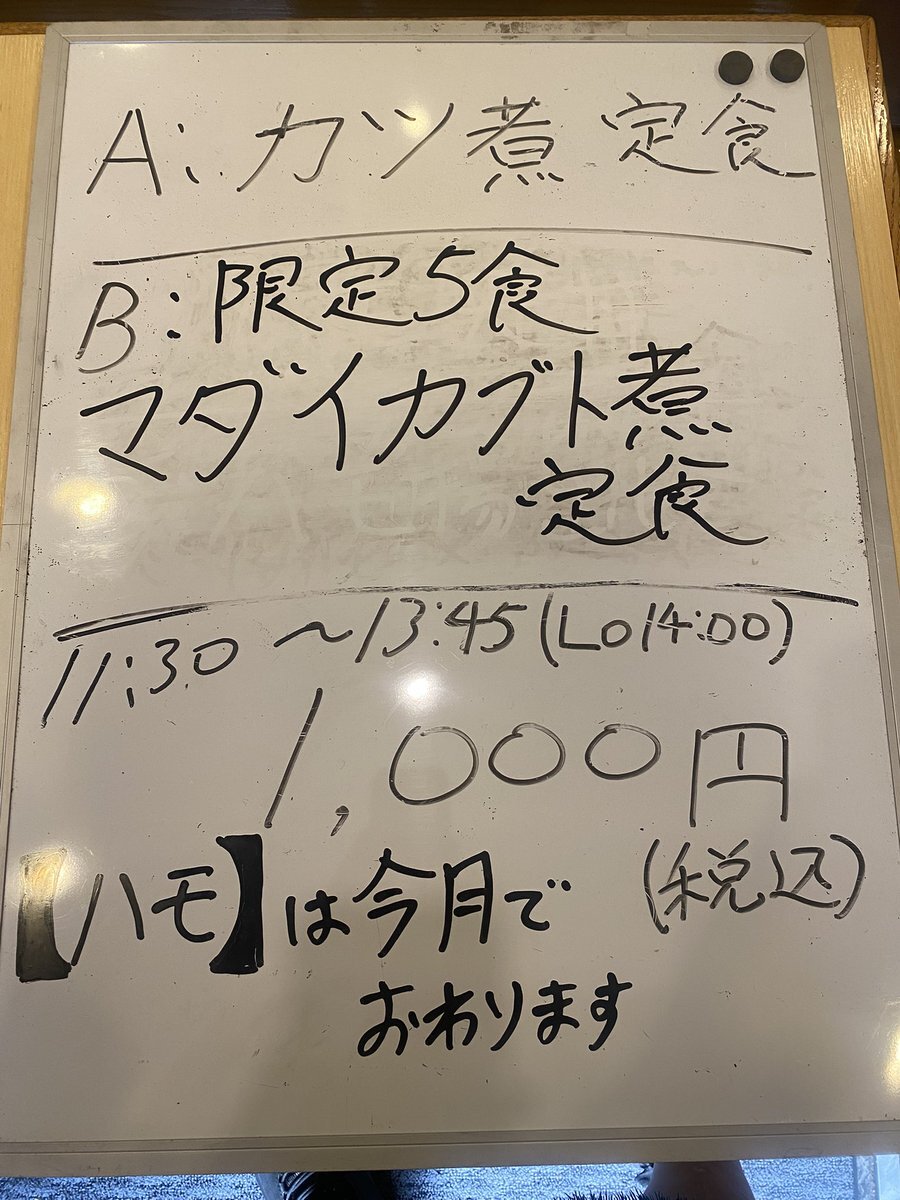 A:カツ煮定食
B:限定5食
マダイカブト煮
定食
11:30～13:45(Lo14:00)
1,000円
(税込)
【ハモ】は今月で
おわります